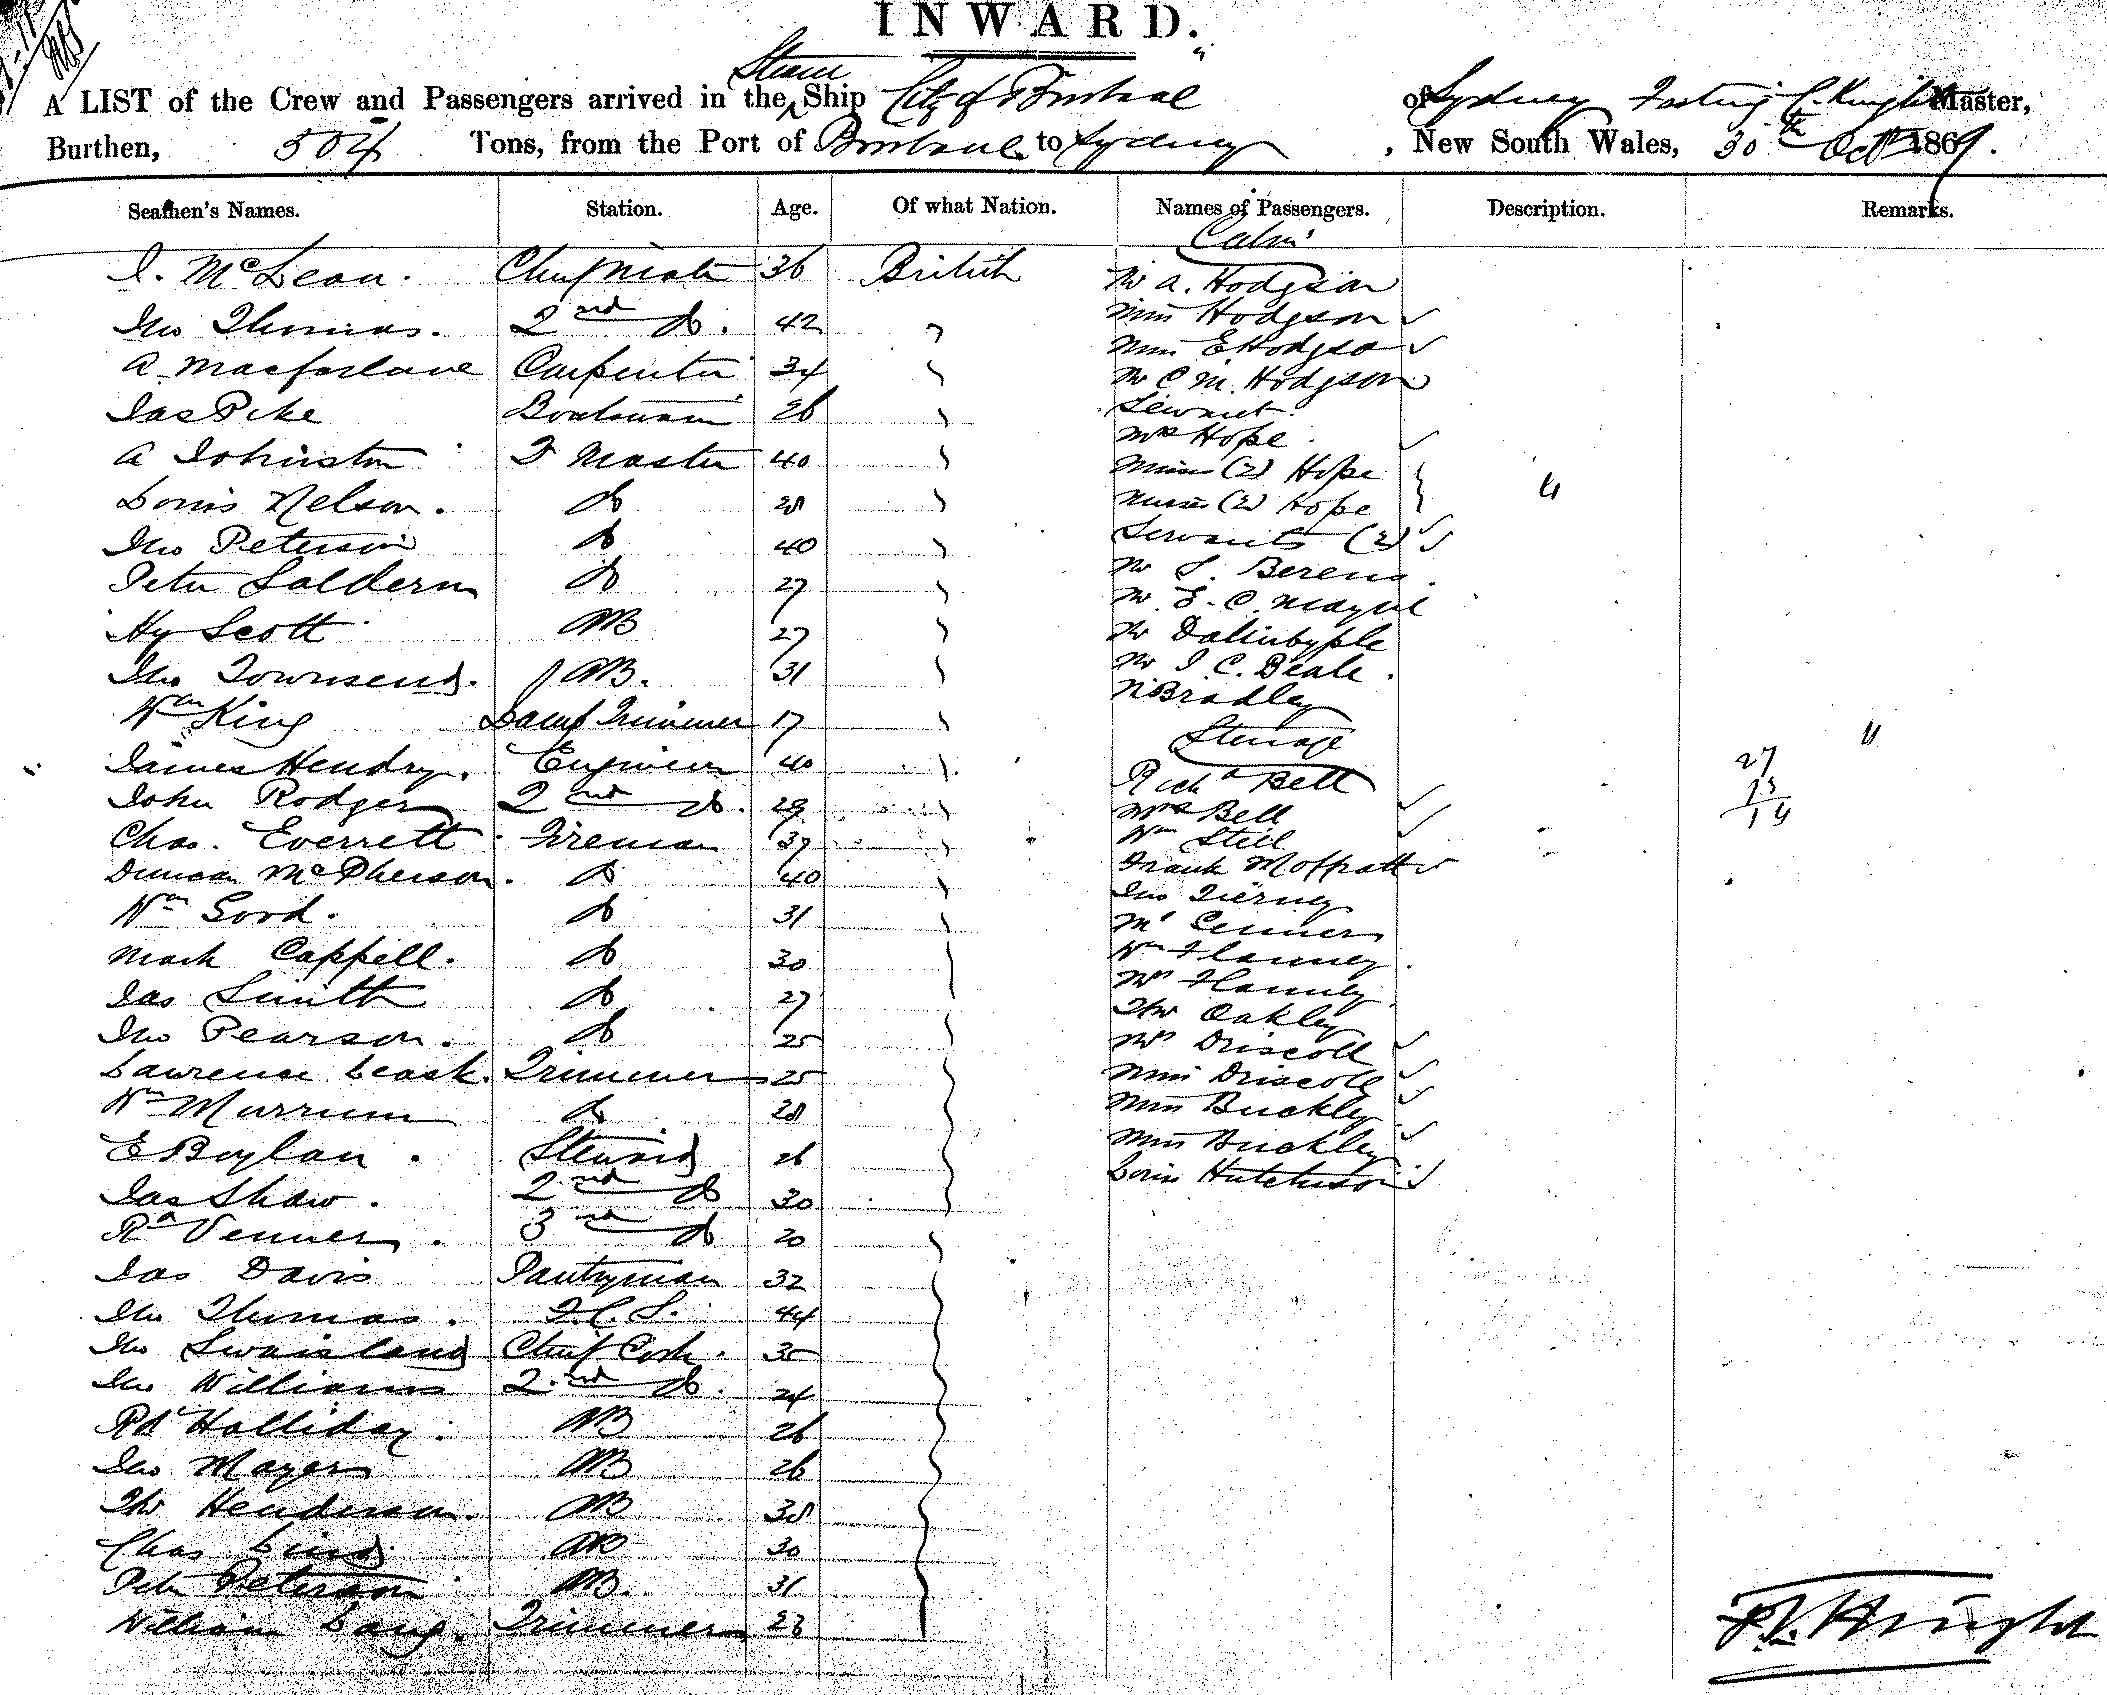 INWARD.
A LIST of the Crew and Passengers arrived in the Steam Ship City of Brisbane of Sydney C. Knight Master,
Burthen, 504 Tons, from the Port of Brisbane to Sydney, New South Wales, 30th Oct 1869.
Seamen's Names. Station. Age. Of what Nation. Names of Passengers. Description. Remarks.
Cabin
J. McLean. Chief Mate 36 British Mr A. Hodgson
Jno Thomas. 2nd do. 42 Miss Hodgson
Miss E Hodgson
A Macfarlane Carpenter 34 Mr C M. Hodgson
Jas Pike Boatswain 26 Servant
Mrs Hope
A Johnston Master 40 Misses (2) Hope
Louis Nelson. do 28 (2) Hope
Jno Peterson do 40 Servants (2)
Peter Saldern do 27 Mr S. Berens
Mr E. C.
Hy Scott AB 27 Mr
Jno Townsend. AB. 31 Mr J C. Beale.
Bradley
Wm King Lamp Trimmer 17
Steerage
James Hendry. Engineer 40 27
Richd Bell 13
John Rodger 2nd do. 29 Mrs Bell 14
Chas. Everrett Fireman 37 Wm Still
Duncan McPherson. do 40 Frank Moffratt
Jno Tierney
Wm Good. do 31 Mr Cenner
Mark Cappell. do 30 Wm Flanney
Mrs Flanney
Jas Smith do 27 Thos Oakley
Jno Pearson. do 25 Mrs Driscoll
Lawrence Leask. Trimmer 25 Miss Driscoll
Wm Murrum do 28 Miss Buckley
E Boylan. Steward 26 Miss Buckley
Jas Shaw. 2nd do 30 Louis Hutchison
Rd Venner. 3rd do 20
Jas Davis Pantryman 32
Jno Thomas. F.C.S. 44
Jno Swaisland Chief Cook. 35
Jno Williams 2nd do. 24
Rd Halliday. AB 26
Jno Mayer AB 26
Thos Henderson. AB 38
Chas Lind AB 30
Peter Peterson AB. 31
William Lang. Trimmer 23
Knight